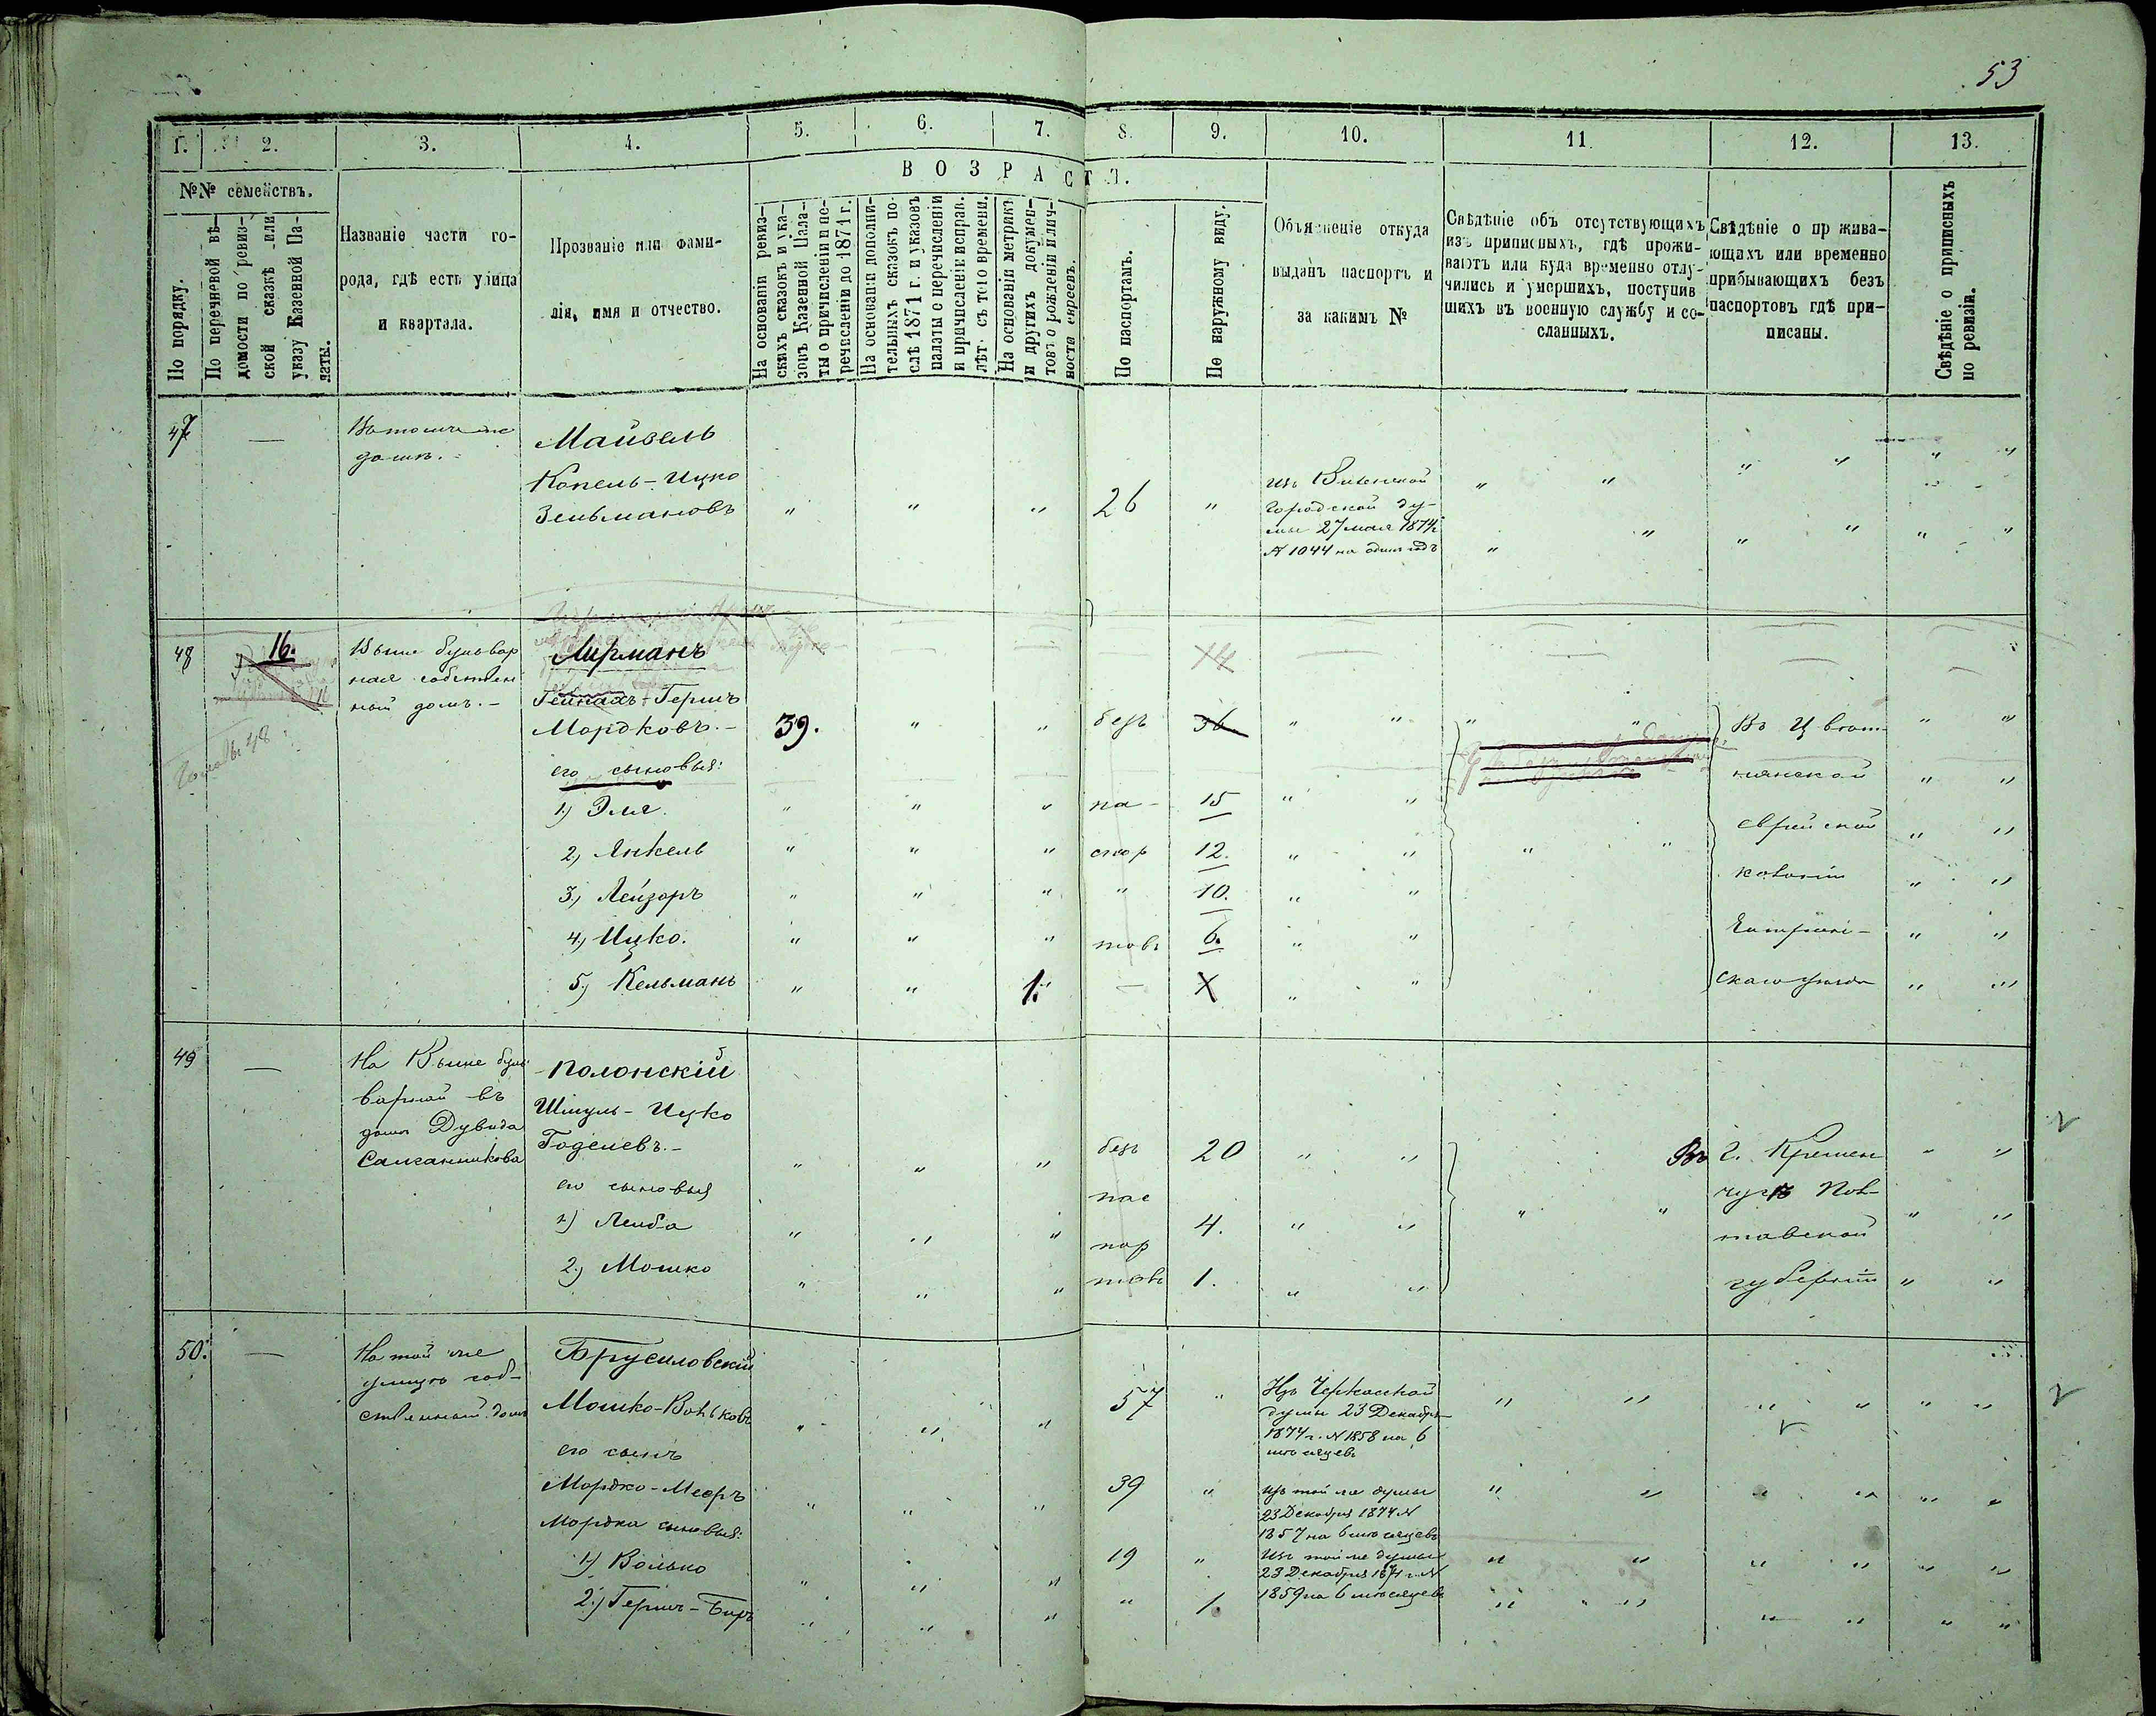 53
1. 2. 3. 4. 5. 6. 7. 8. 9. 10. 11. 12. 13.
№№ семействъ.
По порядку.
По перечневой вѣ-
домости по ревиз-
ской сказкѣ или
указу Казенной Па-
латы.
Названіе части го-
рода, гдѣ есть улица
и квартала.
Прозваніе или фами-
лія, имя и отчество.
ВОЗРАСТЪ.
На основаніи ревиз-
скихъ сказокъ и ука-
зовъ Казенной Пала-
ты о причисленіи и пе-
речисленіи до 1871 г.
На основаніи дополни-
тельныхъ сказокъ по-
слѣ 1871 г. и указовъ
палаты о перечисленіи
и причисленіи исправ.
лѣт. съ того времени.
На основаніи метрикъ
и другихъ докумен-
товъ о рожденіи и лич-
ности евреевъ.
По паспортамъ.
По наружному виду.
Объясненіе откуда
выданъ паспортъ и
за какимъ №
Свѣдѣніе объ отсутствующихъ
изъ приписныхъ, гдѣ прожи-
ваютъ или куда временно отлу-
чились и умершихъ, поступив
шихъ въ военную службу и со-
сланныхъ.
Свѣдѣніе о пр жива-
ющахъ или временно
прибывающихъ безъ
паспортовъ гдѣ при-
писаны.
Свѣдѣніе о приписныхъ
по ревизіи.
47
—
Въ томъ же
домѣ.
Майзель
Копель-Ицко
Зельмановъ
" " " 26 "
изъ Виленской
городской ду-
мы 27 мая 1874 г.
№ 1044 на одинъ годъ
48
16.
Выше бульвар
ная собствен
ный домъ.-
Лирманъ
Гейнахъ-Гершъ
Мордковъ.-
39. " " безъ 36 " "
его сыновья:
1.) Эля. " " " па- 15 " "
2.) Янкель " " " спор 12. " "
3.) Лейзоръ " " " " 10. " "
4.) Ицко. " " " товъ 6. " "
5.) Кельманъ " " 1. — " "
14
Въ
нянской
еврейской
колоніи
скаго уѣзда
49
—
На Выше буль
варной въ
домѣ Дувида
Салганникова
Полонскій
Шмуль-Ицко
Годелевъ.-
" " " безъ 20 " "
его сыновья
пас
1.) Лейба " " " пор 4. " "
2.) Мошко " " " товъ 1. " "
Въ г. Кремен
чугѣ Пол-
тавской
губерніи
50.
—
На той же
улицѣ соб-
ственный домъ
Брусиловскій
Мошко-Вольковъ
" " " 57 "
Изъ Черкасской
думы 23 Декабря
1874 г. № 1858 на 6
мѣсяцевъ
его сынъ
Мордко-Мееръ
" " " 39 "
изъ той же думы
23 Декабря 1874 №
1857 на 6 мѣсяцевъ
Мордка сыновья:
1.) Волько " " " 19 "
Изъ той же думы
23 Декабря 1874 г. №
1859 на 6 мѣсяцевъ
2.) Гершъ-Беръ " " " " 1.